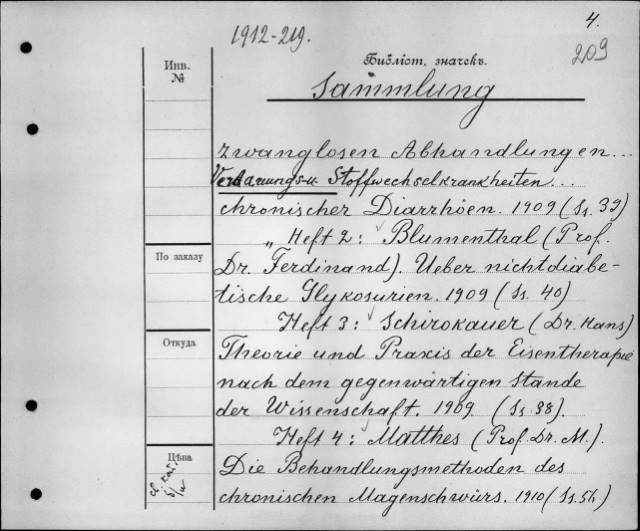 4.
1912-219.
209
Инв.
№
Библіот. значекъ.
Sammlung
zwanglosen Abhandlungen...
Verdauungs-u. Stoffwechselkrankheiten...
chronischer Diarrhöen. 1909 (Ss. 39)
„ Heft 2: Blumenthal (Prof.
По заказу
Dr. Ferdinand). Ueber nichtdiabe-
tische Glykosurien. 1909 (Ss. 40)
Heft 3: Schirokauer (Dr. Hans)
Откуда
Theorie und Praxis der Eisentherapie
nach dem gegenwärtigen Stande
der Wissenschaft. 1909. (Ss. 38).
Heft 4: Matthes (Prof. Dr. M.).
Цѣна
Die Behandlungsmethoden des
chronischen Magenschwürs. 1910 (Ss. 56)